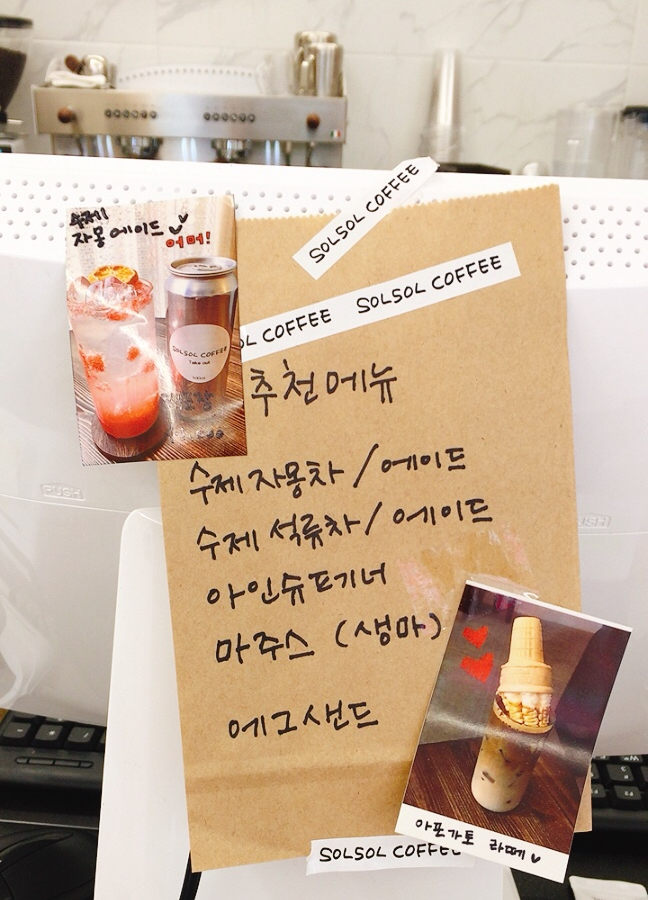 SOLSOL COFFEE
SOLSOL COFFEE
OL COFFEE SOLSOL COFFEE
수제
자몽에이드
어머!
SOLSOL COFFEE
Take out
추천메뉴
수제 자몽차 / 에이드
수제 석류차 / 에이드
아인슈프기너
마주스 (생마)
에그샌드
아포가토 라떼
SOLSOL COFFEE
PUSH